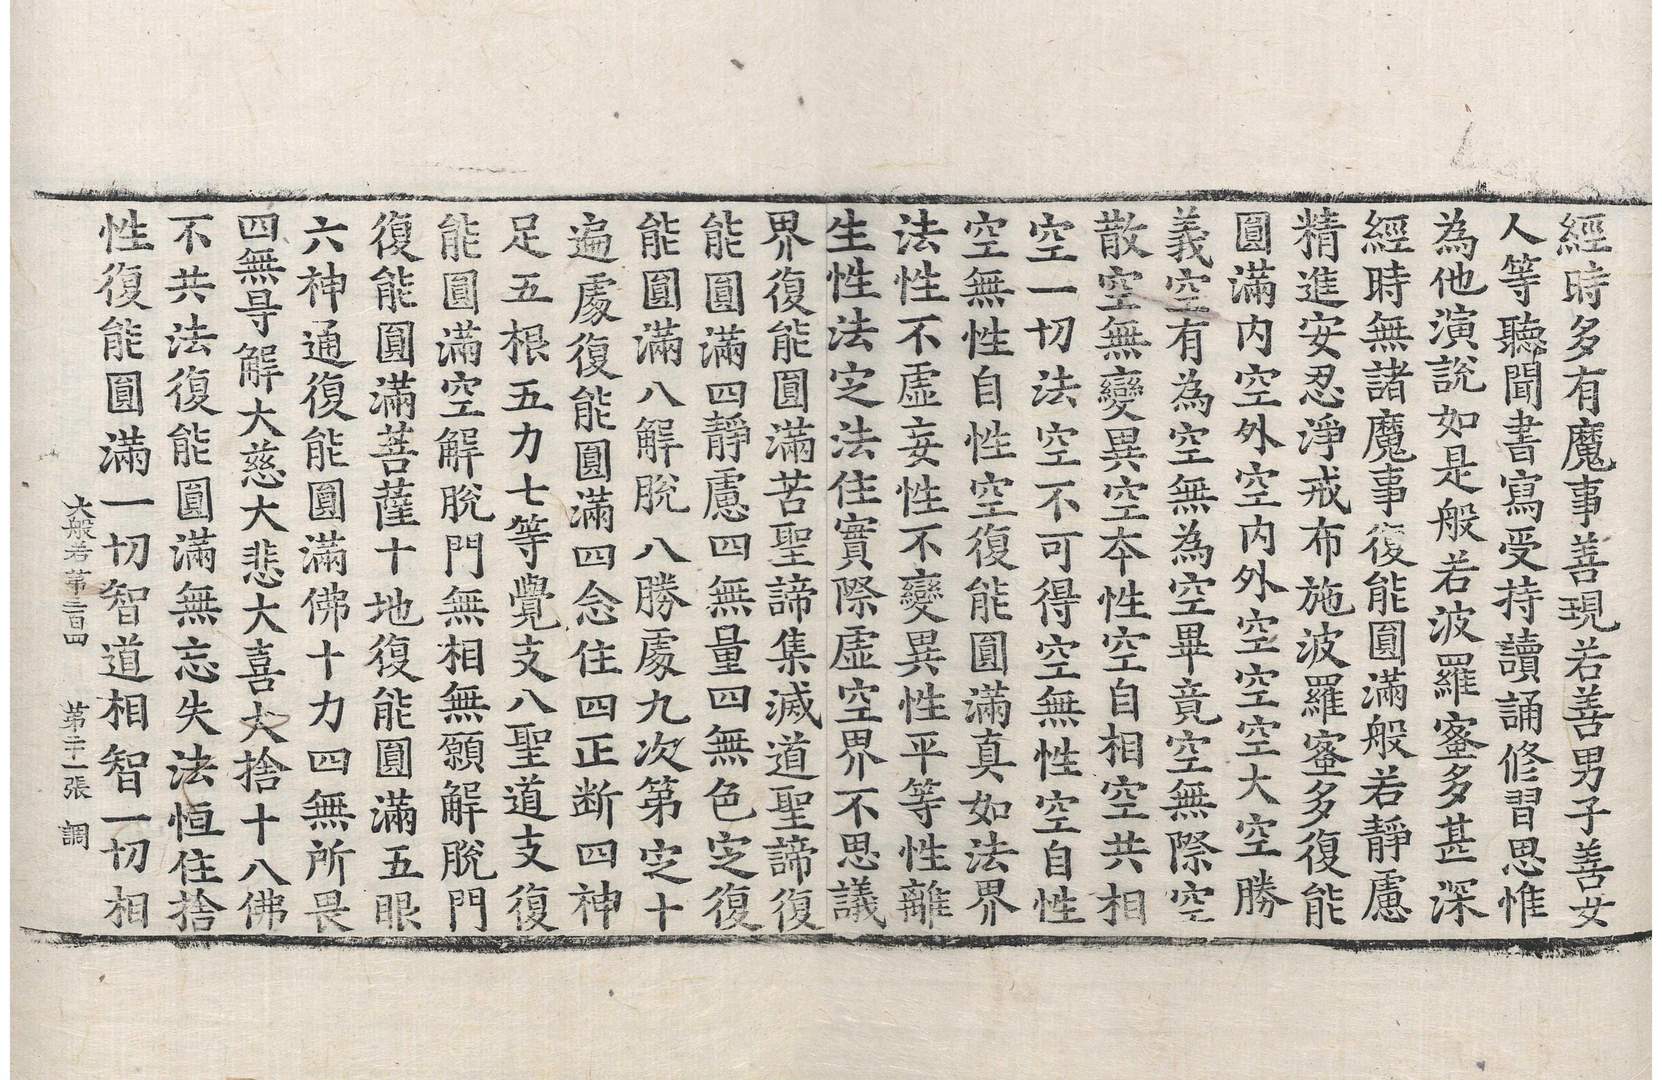 經時多有魔事善現若善男子善女
人等聽聞書寫受持讀誦修習思惟
為他演說如是般若波羅蜜多甚深
經時無諸魔事復能圓滿般若靜慮
精進安忍淨戒布施波羅蜜多復能
圓滿內空外空內外空空空大空勝
義空有為空無為空畢竟空無際空
散空無變異空本性空自相空共相
空一切法空不可得空無性空自性
空無性自性空復能圓滿真如法界
法性不虛妄性不變異性平等性離
生性法定法住實際虛空界不思議
界復能圓滿苦聖諦集滅道聖諦復
能圓滿四靜慮四無量四無色定復
能圓滿八解脫八勝處九次第定十
遍處復能圓滿四念住四正斷四神
足五根五力七等覺支八聖道支復
能圓滿空解脫門無相無願解脫門
復能圓滿菩薩十地復能圓滿五眼
六神通復能圓滿佛十力四無所畏
四無㝵解大慈大悲大喜大捨十八佛
不共法復能圓滿無忘失法恒住捨
性復能圓滿一切智道相智一切相
大般若第三百四 第二十一張 調